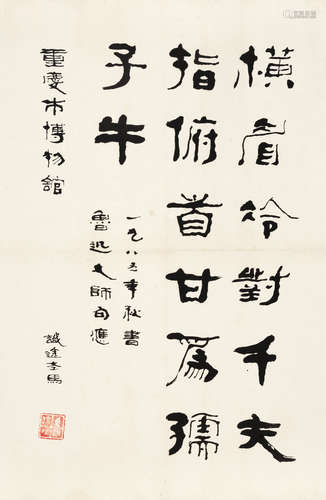 橫眉冷對千夫
指俯首甘爲孺
子牛
一九八五年秋書
魯迅大師句應
重慶市博物館